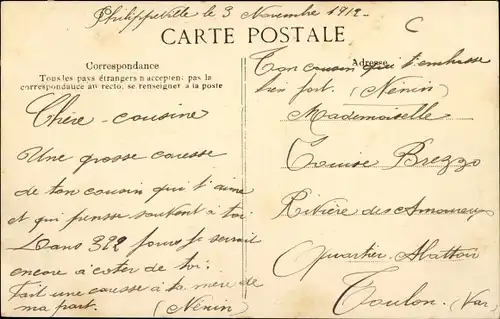 Philippeville le 3 Novembre 1912
C
CARTE POSTALE
Correspondance
Tous les pays étrangers n'acceptent pas la
correspondance au recto, se renseigner à la poste
Chère cousine
Une grosse caresse
de ton cousin qui t'aime
et qui pense souvent à toi
Dans 322 jours je serai
encore à coter de toi.
fait une caresse à ta mère de
ma part. (Nénin)
Adresse
Ton cousin qui t'embrasse
bien fort. (Nénin)
Mademoiselle
Louise Brezzo
Rivière des Amoureux
Quartier Abattoir
Toulon. (Var)